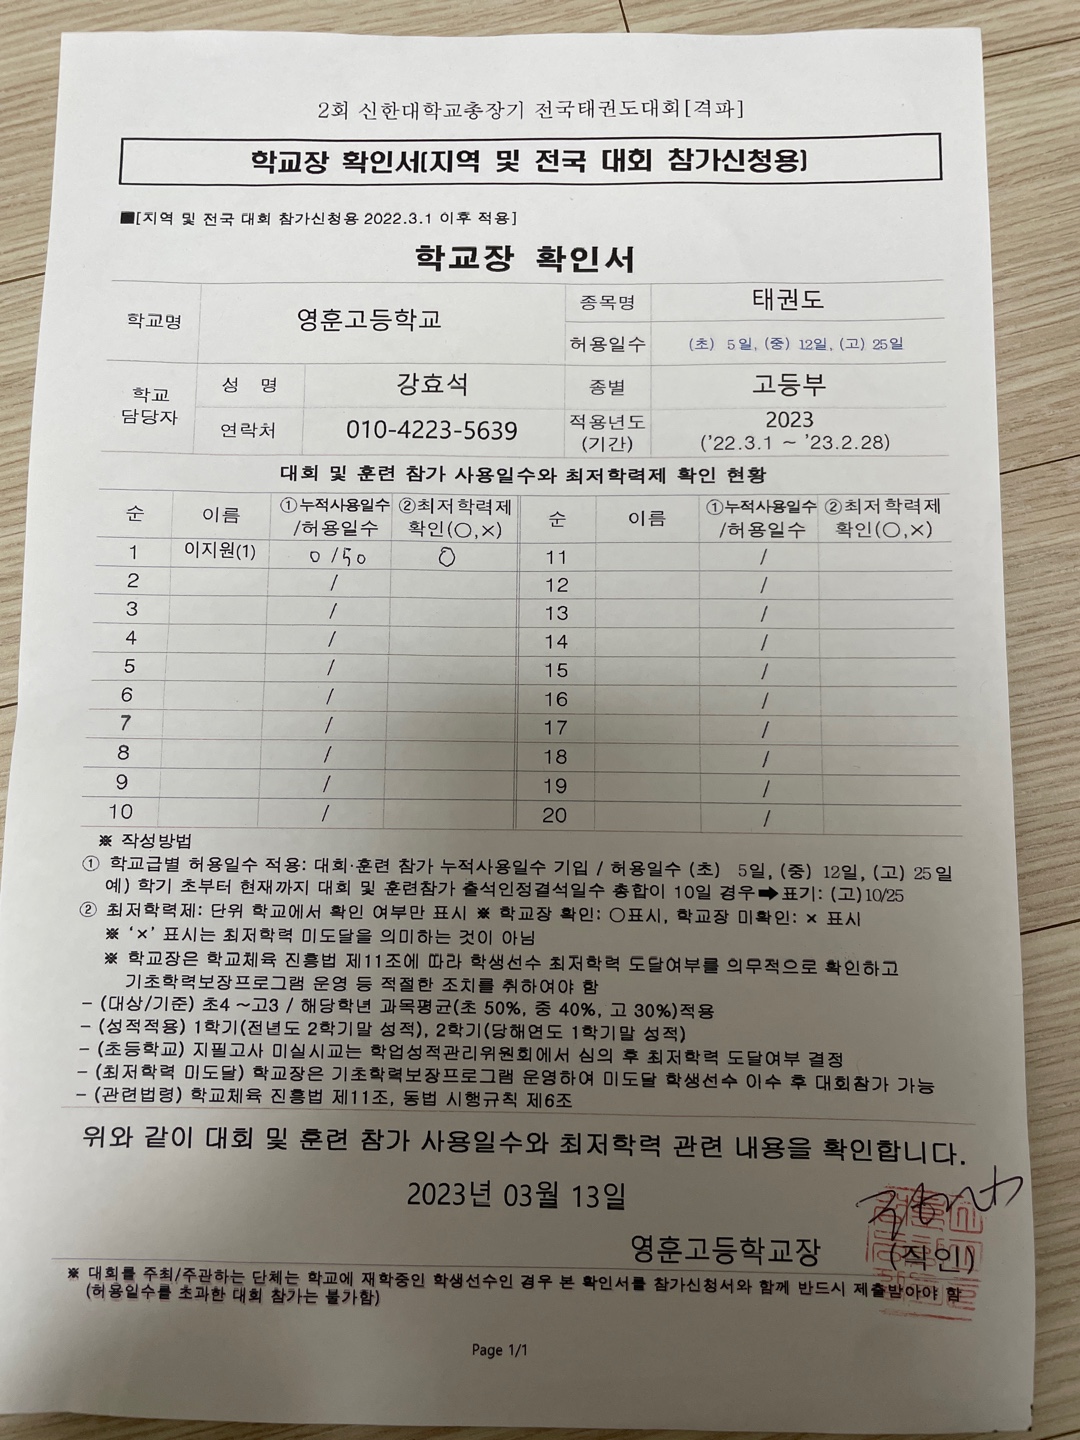 2회 신한대학교총장기 전국태권도대회[격파]
학교장 확인서(지역 및 전국 대회 참가신청용)
■[지역 및 전국 대회 참가신청용 2022.3.1 이후 적용]
학교장 확인서
학교명 영훈고등학교 종목명 태권도
허용일수 (초) 5일, (중) 12일, (고) 25일
학교 담당자 성 명 강효석 종별 고등부
연락처 010-4223-5639 적용년도 (기간) 2023 ('22.3.1 ~ '23.2.28)
대회 및 훈련 참가 사용일수와 최저학력제 확인 현황
순 이름 ①누적사용일수 /허용일수 ②최저학력제 확인(○,×) 순 이름 ①누적사용일수 /허용일수 ②최저학력제 확인(○,×)
1 이지원(1) 0/50 ○ 11 /
2 / 12 /
3 / 13 /
4 / 14 /
5 / 15 /
6 / 16 /
7 / 17 /
8 / 18 /
9 / 19 /
10 / 20 /
※ 작성방법
① 학교급별 허용일수 적용: 대회·훈련 참가 누적사용일수 기입 / 허용일수 (초) 5일, (중) 12일, (고) 25일
예) 학기 초부터 현재까지 대회 및 훈련참가 출석인정결석일수 총합이 10일 경우➡표기: (고)10/25
② 최저학력제: 단위 학교에서 확인 여부만 표시 ※ 학교장 확인: ○표시, 학교장 미확인: × 표시
※ '×' 표시는 최저학력 미도달을 의미하는 것이 아님
※ 학교장은 학교체육 진흥법 제11조에 따라 학생선수 최저학력 도달여부를 의무적으로 확인하고
기초학력보장프로그램 운영 등 적절한 조치를 취하여야 함
- (대상/기준) 초4 ~고3 / 해당학년 과목평균(초 50%, 중 40%, 고 30%)적용
- (성적적용) 1학기(전년도 2학기말 성적), 2학기(당해연도 1학기말 성적)
- (초등학교) 지필고사 미실시교는 학업성적관리위원회에서 심의 후 최저학력 도달여부 결정
- (최저학력 미도달) 학교장은 기초학력보장프로그램 운영하여 미도달 학생선수 이수 후 대회참가 가능
- (관련법령) 학교체육 진흥법 제11조, 동법 시행규칙 제6조
위와 같이 대회 및 훈련 참가 사용일수와 최저학력 관련 내용을 확인합니다.
2023년 03월 13일
영훈고등학교장 (직인)
※ 대회를 주최/주관하는 단체는 학교에 재학중인 학생선수인 경우 본 확인서를 참가신청서와 함께 반드시 제출받아야 함
(허용일수를 초과한 대회 참가는 불가함)
Page 1/1